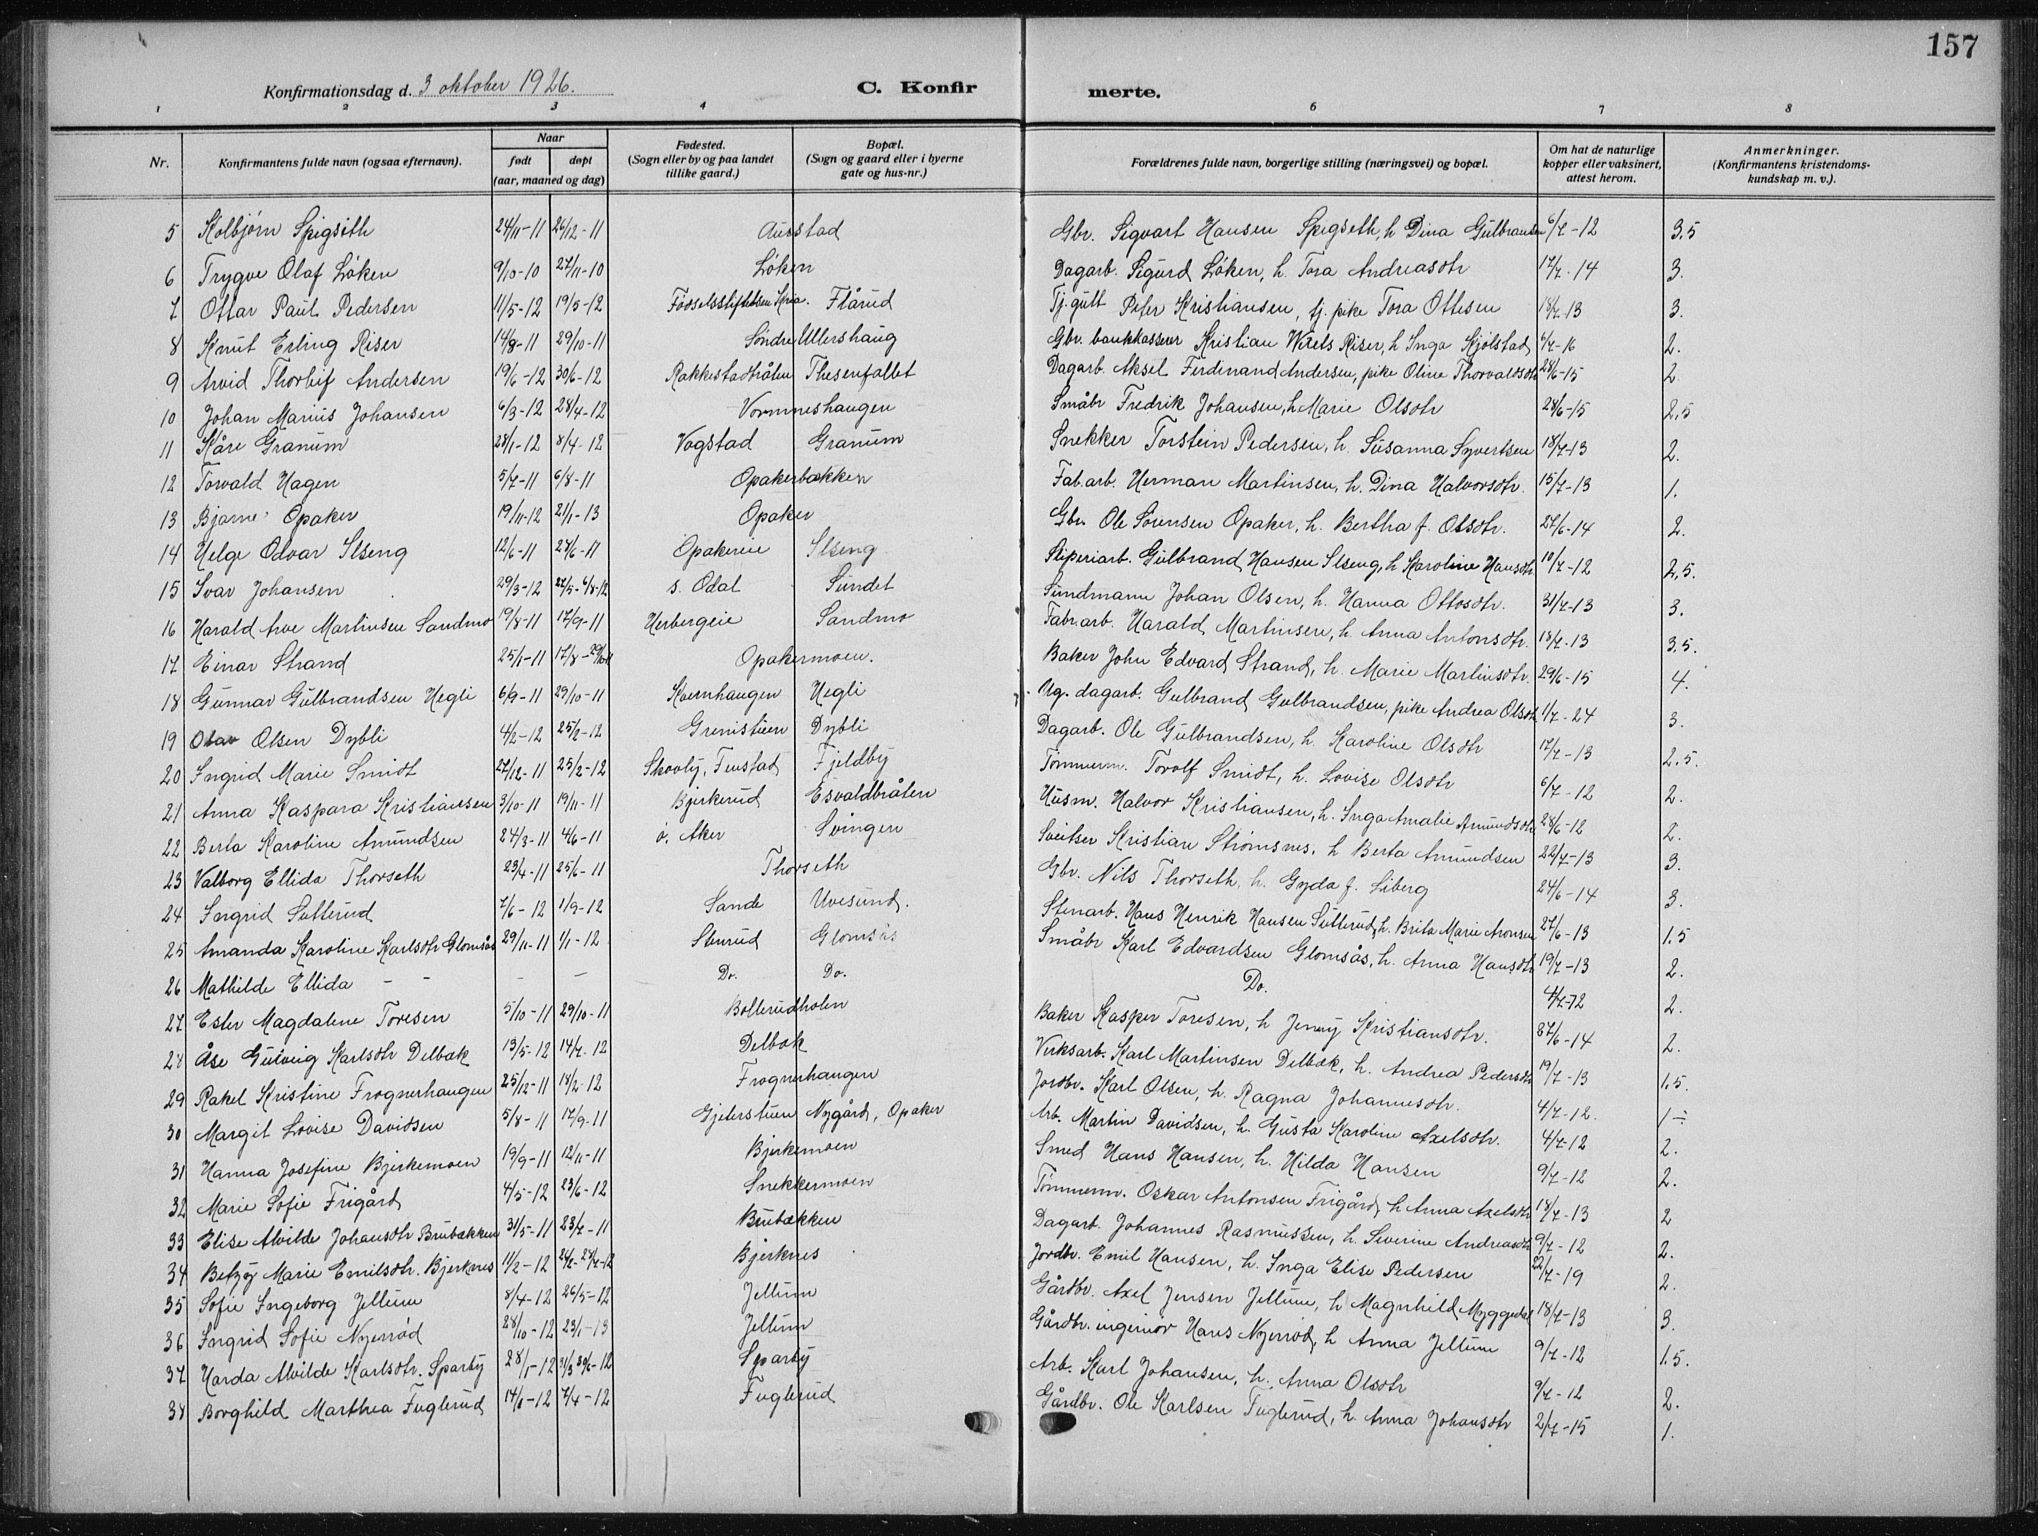 157
Konfirmationsdag d. 3 oktober 1926.
C. Konfir merte.
1 2 3 4 6 7 8
Nr. Konfirmantens fulde navn (ogsaa efternavn). Naar født døpt (aar, maaned og dag) Fødested. (Sogn eller by og paa landet tillike gaard.) Bopæl. (Sogn og gaard eller i byerne gate og hus-nr.) Forældrenes fulde navn, borgerlige stilling (næringsvei) og bopæl. Om hat de naturlige kopper eller vaksinert, attest herom. Anmerkninger. (Konfirmantens kristendoms-kundskap m. v.).
5 Kolbjørn Spigseth 24/11-11 26/12-11 Ausstad Gbr. Sigvart Hansen Spigseth, h Dina Gulbrandsen 6/7-12 3.5
6 Trygve Olaf Løken 9/10-10 27/11-10 Løken Dagarb. Sigurd Løken, h. Tora Andreasdtr 17/7-14 3.
7 Ottar Paul Pedersen 11/5-12 19/5-12 Fødselsstiftelsen Kria. Flårud Tj.gutt Peter Kristiansen, tj. pike Tora Ottesen 18/7-13 3.
8 Knut Erling Riser 14/8-11 29/10-11 Søndre Ullershaug Gbr. bankkasserer Kristian Wiels Riser, h Inga Kjølstad 4/7-16 2.
9 Arvid Thorleif Andersen 19/6-12 30/6-12 Rakkestadbråten Thesenfallet Dagarb. Aksel Ferdinand Andersen, pike Oline Thorvaldsdtr 28/6-15 2
10 Johan Marius Johansen 6/3-12 28/4-12 Vormneshaugen Småbr Fredrik Johansen, h Marie Olsdtr 28/6-15 2,5
11 Kåre Granum 28/1-12 8/4-12 Vogstad Granum Snekker Torstein Pedersen, h. Susanna Syvertsen 18/7-13 2.
12 Torvald Hagen 5/7-11 6/8-11 Opakerbækken Fab.arb. Herman Martinsen, h. Dina Halvorsdtr. 15/7-13 1.
13 Bjarne Opaker 19/11-12 21/1-13 Opaker Gbr. Ole Sørensen Opaker, h. Bertha f. Olsdtr. 27/6-14 2.
14 Helge Odvar Slseng 12/6-11 27/6-11 Opakereie Slseng Sliperiarb. Gulbrand Hansen Slseng, h Karoline Hansdtr 10/7-12 2,5.
15 Ivar Johansen 29/3-12 27/5-4/8-12 s. Odal Sundet Sundmann Johan Olsen, h. Hanna Ottosdtr. 31/7-13 3.
16 Harald Arve Martinsen Sandmo 19/8-11 17/9-11 Herbergeie Sandmo Fabr.arb. Harald Martinsen, h. Anna Antonsdtr. 18/7-13 3.5.
17 Einar Strand 25/1-11 Opakermoen. Baker John Edvard Strand, h. Marie Martinsdtr. 29/6-15 4.
18 Gunnar Gulbrandsen Hegli 6/9-11 29/10-11 Kvernhaugen Hegli Ug. dagarb. Gulbrand Gulbrandsen, pike Andrea Olsdtr 1/7-24 3.
19 Olav Olsen Dybli 4/2-12 25/2-12 Grenistuen Dybli Dagarb. Ole Gulbrandsen, h. Karoline Olsdtr 17/7-13 2.5.
20 Ingrid Marie Smidt 27/12-11 25/2-12 Skovly, Fenstad Fjeldby Tømmerm. Torolf Smidt, h. Lovise Olsdtr 6/7-12 2.
21 Anna Kaspara Kristiansen 3/10-11 19/11-11 Bjerkerud Esvaldbråten Husm. Halvor Kristiansen, h. Inga Amalie Amundsdtr 28/6-12 2.
22 Berta Karoline Amundsen 24/3-11 4/6-11 ø. Aker Svingen Sveitser Kristian Strømsnes, h Berta Amundsen 22/7-13 3.
23 Valborg Ellida Thorseth 23/4-11 25/6-11 Thorseth Gbr. Nils Thorseth, h. Gyda f. Siberg 24/6-14 3.
24 Ingrid Sutterud 7/6-12 1/9-12 Sande Uvesund. Stenarb. Hans Henrik Hansen Sutterud, h. Brita Marie Aronsen 27/6-13 1.5
25 Amanda Karoline Karlsdtr Glomsås 29/11-11 1/1-12 Stenrud Glomsås Småbr Karl Edvardsen Glomsås, h. Anna Hansdtr 19/7-13 2.
26 Mathilde Ellida - - - - Do. Do. Do. 4/7-12 2.
27 Ester Magdalene Toresen 5/10-11 29/10-11 Bollerudholen Baker Kasper Toresen, h Jenny Kristiansdtr. 27/6-14 2.
28 Åse Gulvig Karlsdtr Delbæk 13/5-12 14/7-12 Delbæk Verksarb. Karl Martinsen Delbæk, h. Andrea Pedersdtr 19/7-13 1,5.
29 Rakel Kristine Frognerhaugen 25/12-11 18/2-12 Frognerhaugen Jordbr. Karl Olsen, h. Ragna Johannesdtr. 4/7-12. 1÷
30 Margit Lovise Davidsen 5/8-11 17/9-11 Gjelerstuen Nygård, Opaker Arb. Martin Davidsen, h. Gusta Karoline Axelsdtr. 4/7-12 2.
31 Hanna Josefine Bjerkemoen 19/9-11 12/11-11 Bjerkemoen Smed Hans Hansen, h. Hilda Hansen 9/7-12 2.
32 Marie Sofie Frigård 4/5-12 23/6-12 Snekkermoen Tømmerm. Oskar Antonsen Frigård, h Anna Axelsdtr 18/7-13 2
33 Elise Alvilde Johansdtr Brubækken 31/5-11 23/7-11 Brubækken Dagarb. Johannes Rasmussen, h. Severine Andreasdtr 9/7-12 2.
34 Betzy Marie Emilsdtr. Bjerknes 11/2-12 Bjerknes Jordbr. Emil Hansen, h. Inga Elise Pedersen 22/7-19 2.
35 Sofie Ingeborg Jellum 8/4-12 26/5-12 Jellum Gårdbr. Axel Jensen Jellum, h Magnhild Myggedal 18/7-13 3.
36 Ingrid Sofie Nyerrød 28/10-12 23/1-13 Jellum Gårdbr. ingeniør Hans Nyerrød, h Anna Jellum 9/7-12 1.5.
37 Harda Alvilde Karlsdtr. Sparby 28/1-12 31/3 30/6-12 Sparby Arb. Karl Johansen, h. Anna Olsdtr 9/7-12 2.
38 Borghild Marthea Fuglerud 14/1-12 7/4-12 Fuglerud Gårdbr. Ole Karlsen Fuglerud, h. Anna Johansdtr 2/7-15 1.